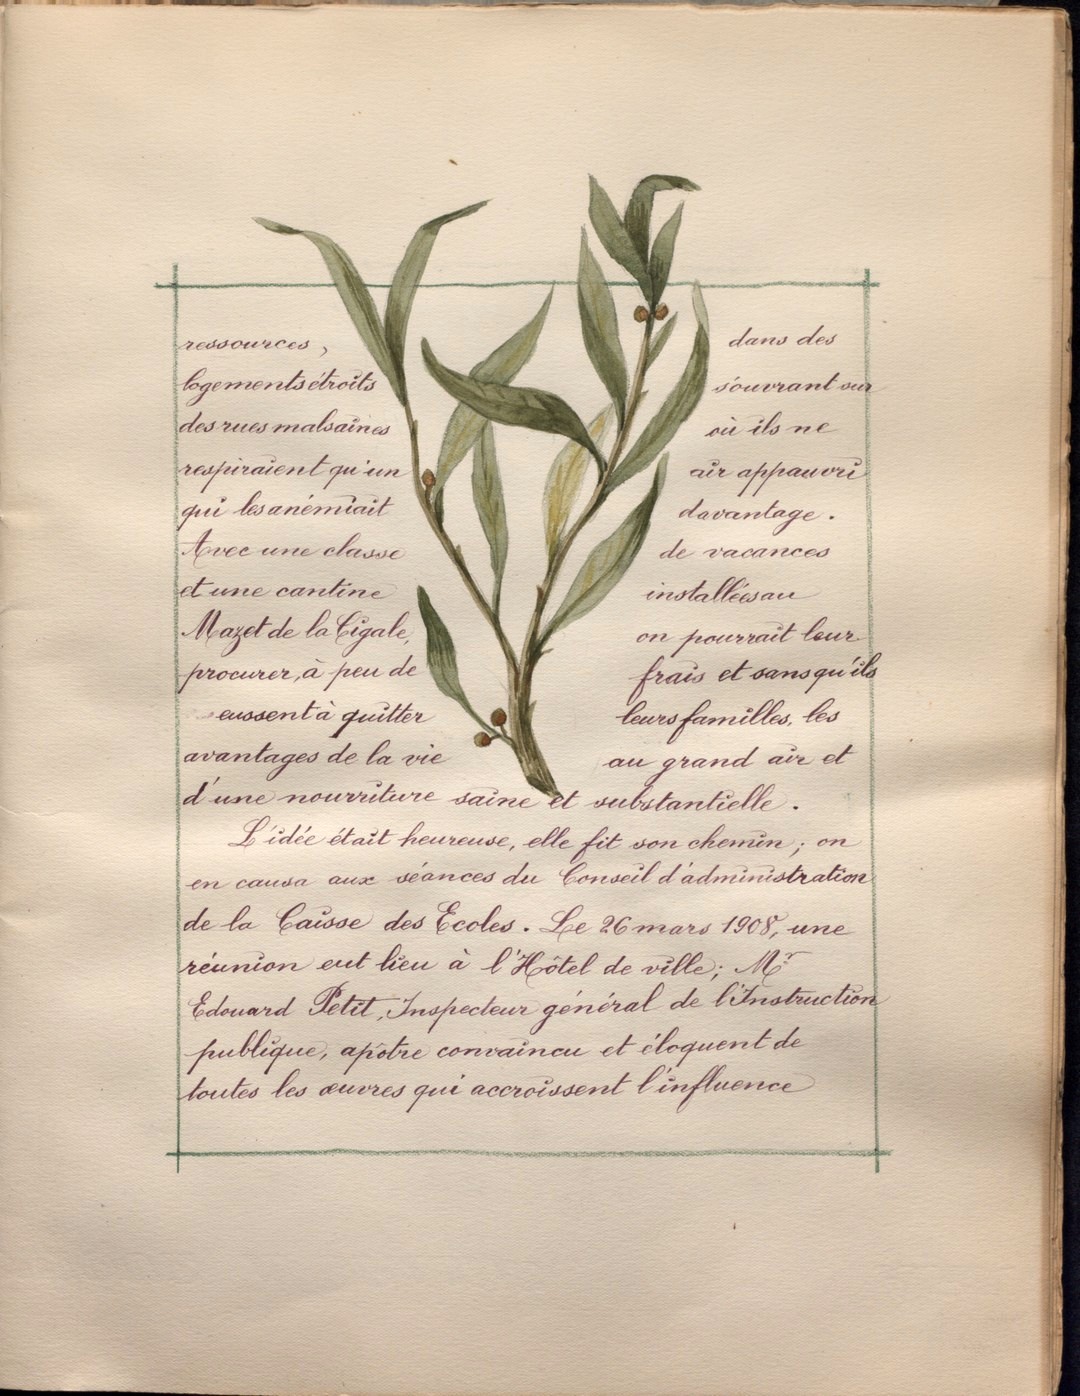 ressources, dans des
logements étroits s'ouvrant sur
des rues malsaines où ils ne
respiraient qu'un air appauvri
qui les anémiait davantage.
Avec une classe de vacances
et une cantine installées au
Mazet de la Cigale, on pourrait leur
procurer, à peu de frais et sans qu'ils
eussent à quitter leurs familles, les
avantages de la vie au grand air et
d'une nourriture saine et substantielle.
L'idée était heureuse, elle fit son chemin; on
en causa aux séances du Conseil d'administration
de la Caisse des Ecoles. Le 26 mars 1908, une
réunion eut lieu à l'Hôtel de ville; Mr
Edouard Petit, Inspecteur général de l'Instruction
publique, apôtre convaincu et éloquent de
toutes les œuvres qui accroissent l'influence